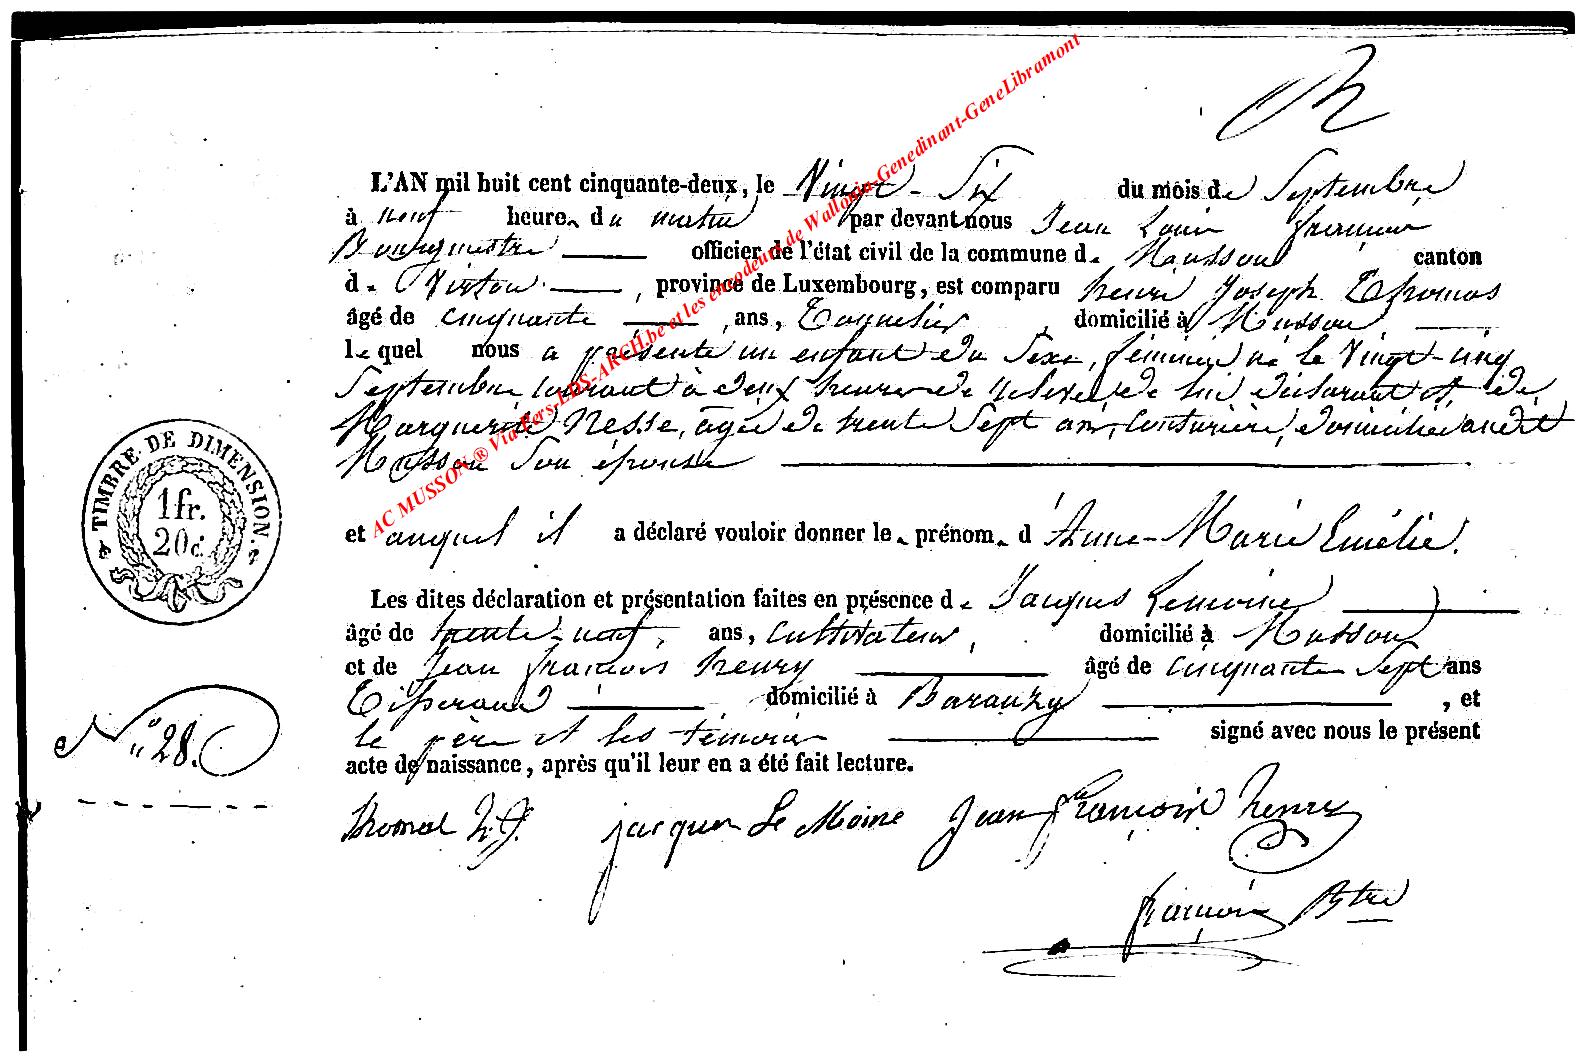 L'AN mil huit cent cinquante-deux, le Vingt-Six du mois de Septembre
à neuf heure du matin par devant nous Jean Louis françois
Bourgmestre officier de l'état civil de la commune de Musson canton
de Virton, province de Luxembourg, est comparu henri Joseph Thomas
âgé de cinquante ans, Tonnelier, domicilié à Musson,
lequel nous a présenté un enfant du Sexe féminin né le Vingt-cinq
Septembre courant à deux heures de relevée de lui déclarant et de
Marguerite Nesse, agée de trente Sept ans, Couturière, domiciliée audit
Musson Son épouse
et auquel il a déclaré vouloir donner le prénom d'Anne-Marie Emélie.
Les dites déclaration et présentation faites en présence de Jacques Lemoine
âgé de trente-neuf, ans, Cultivateur, domicilié à Musson
et de Jean françois henry âgé de cinquante Sept ans
Tisserand domicilié à Baranzy, et
le père et les témoins signé avec nous le présent
acte de naissance, après qu'il leur en a été fait lecture.
Thomas h. J. jacques Le Moine Jean françois henry
françois Btre
TIMBRE DE DIMENSION
1 fr.
20 c.
N° 28.
AC MUSSON ® Via Pers-LDS-ARCH.be et les encodeurs de Wallonia-Genedinant-GeneLibramont